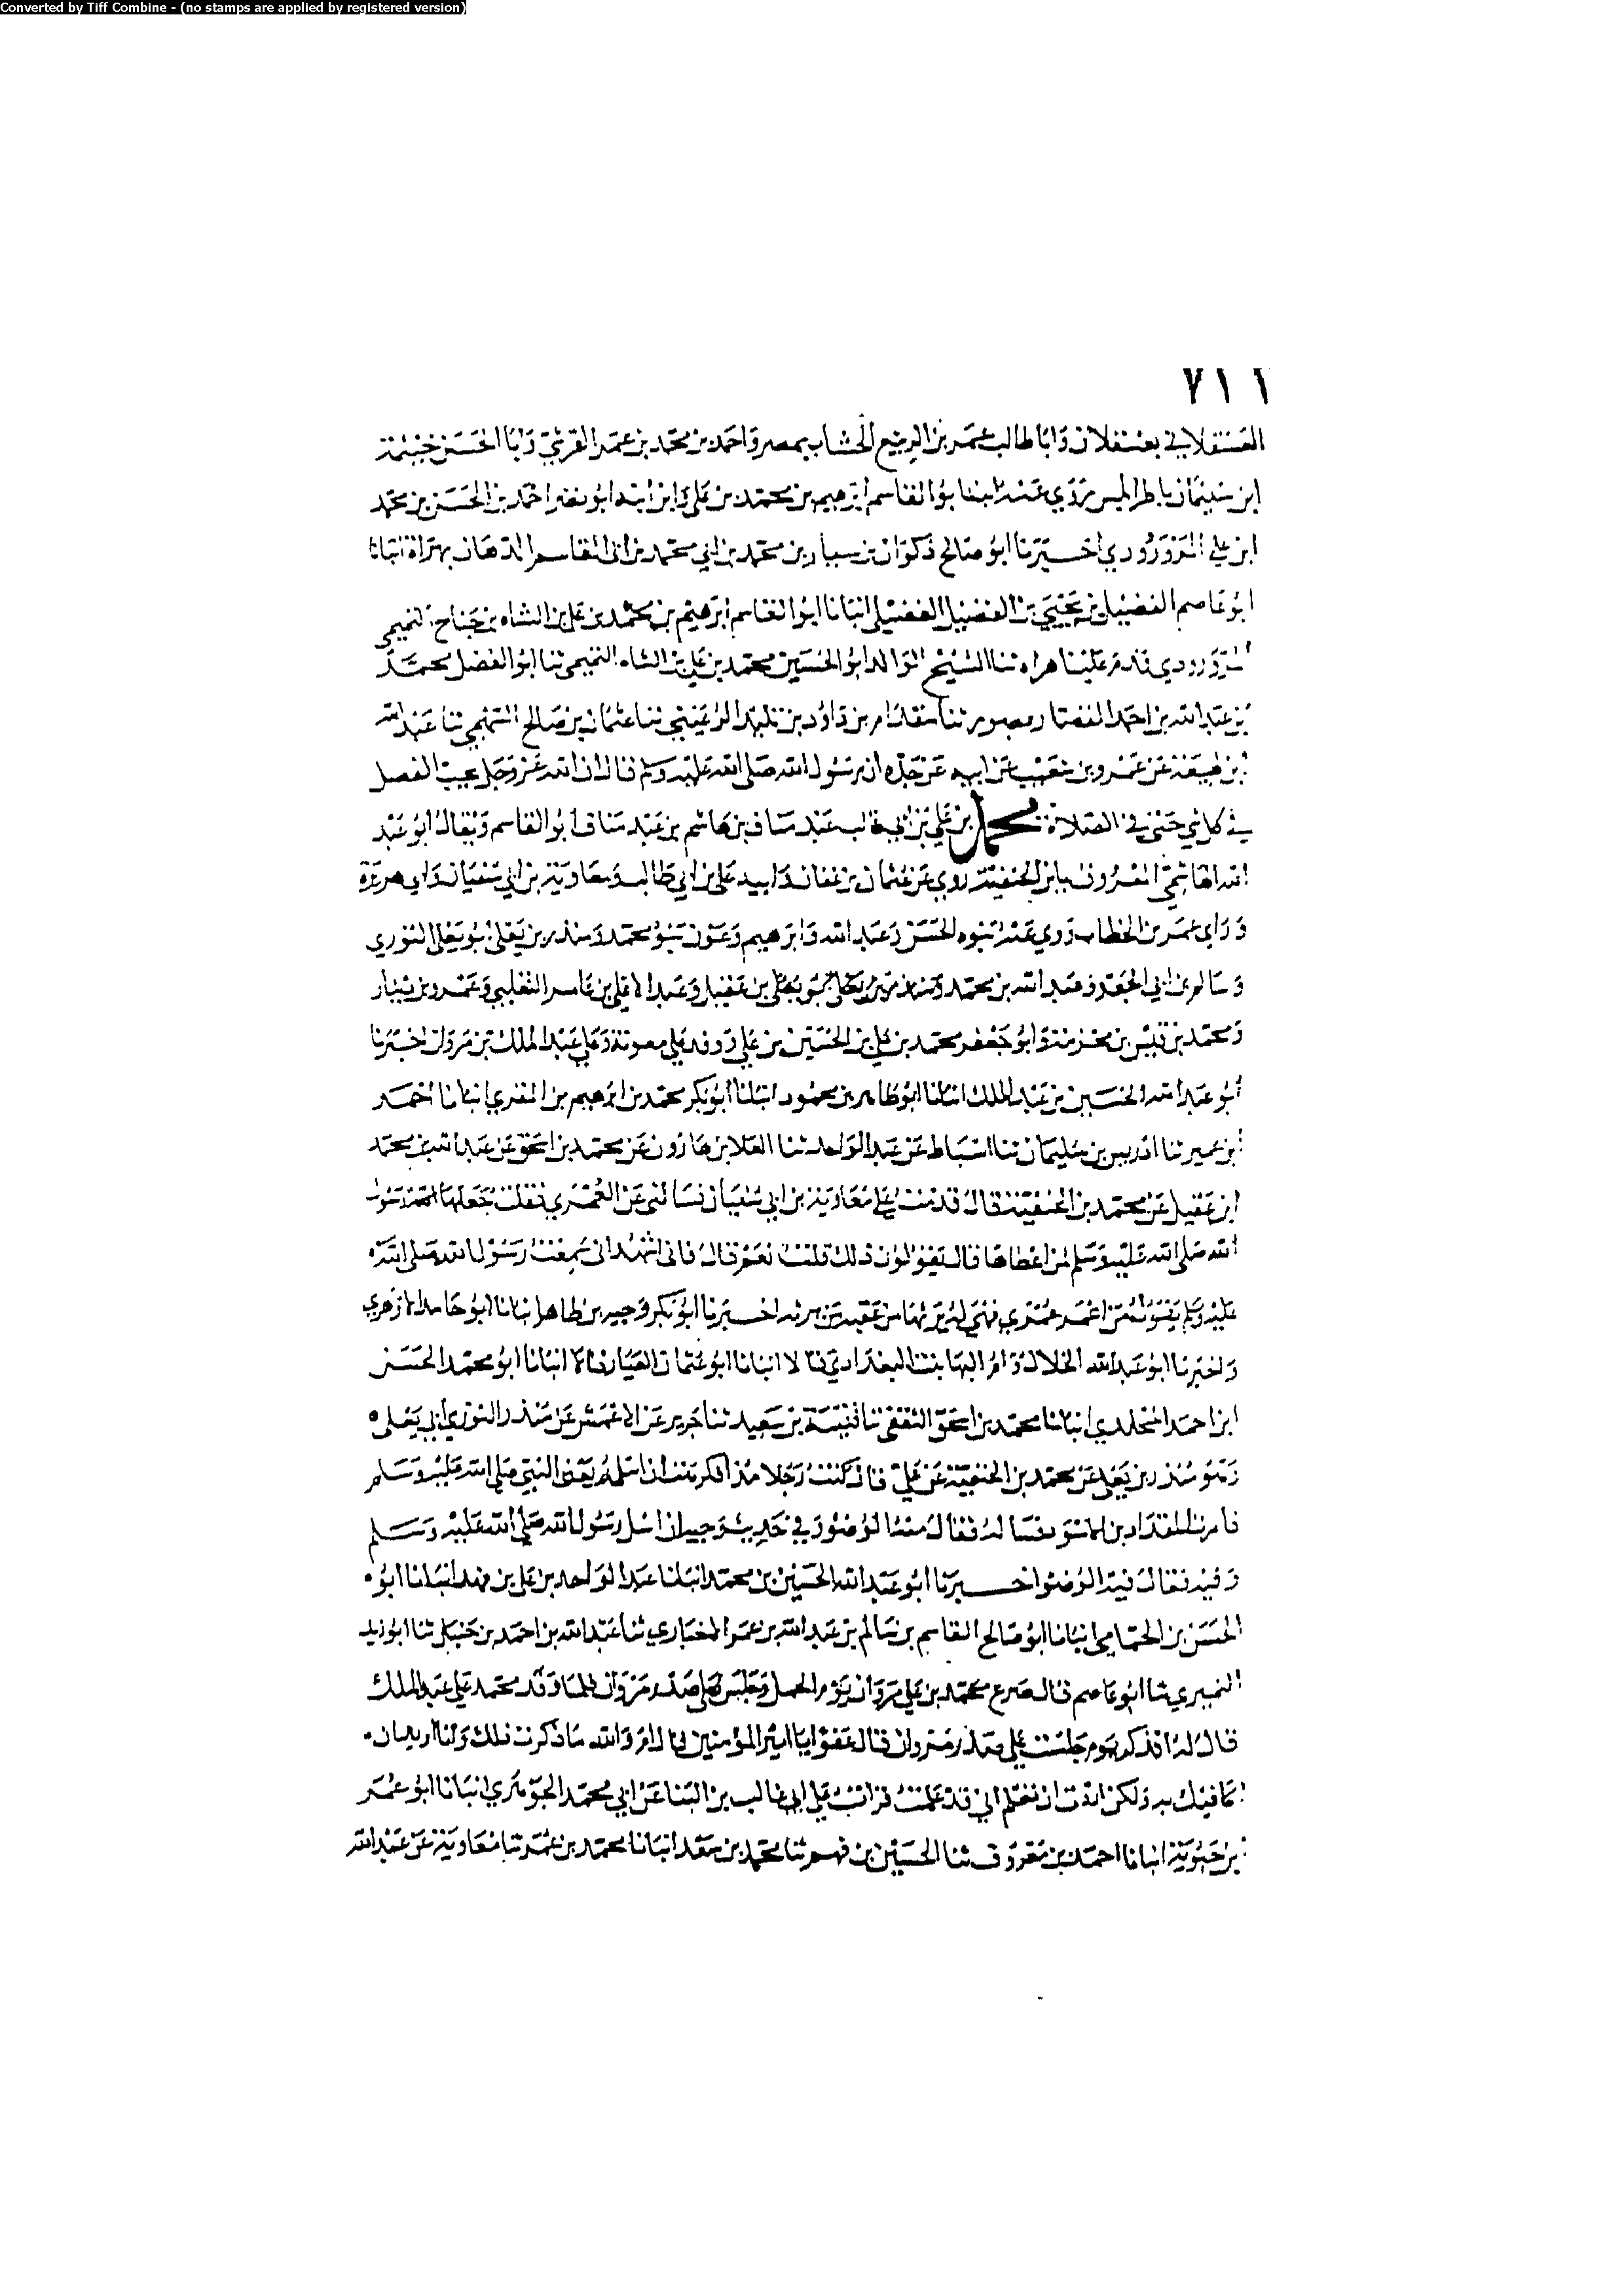 Converted by Tiff Combine - (no stamps are applied by registered version)
٧١١
العسقلاني بعسقلان وابا طالب عمر بن الربيع الخشاب بمصر واحمد بن محمد بن عمر القرشي وابا الحسن خيثمة
ابن سليمان باطرابلس روي عنه ابنه ابو القاسم ابرهيم بن محمد بن علي وابن ابنه ابو نصر احمد بن الحسن بن محمد
ابن علي المروروذي اخبرنا ابو صالح ذكوان بن سيار بن محمد بن ابي محمد بن ابي القاسم الدهان بهراة انبانا
ابو عاصم الفضيل بن يحيي بن الفضيل الفضيلي انبانا ابو القاسم ابرهيم بن محمد بن علي بن الشاه بن جناح التميمي
المرورودي قدم علينا هراه ثنا الشيخ الوالد ابو الحسين محمد بن علي بن الشاه التميمي ثنا ابو الفضل محمد
بن عبد الله بن احمد بمصر ثنا مقدام بن داود بن تليد الرعيني ثنا عثمان بن صالح السهمي ثنا عبد الله
بن لهيعة عن عمرو بن شعيب عن ابيه عن جده ان رسول الله صلى الله عليه وسلم قال ان الله عز وجل يحب الفضل
في كل شي حتى في الصلاة محمد بن علي بن ابي طالب عبد مناف بن هاشم بن عبد مناف ابو القاسم ويقال ابو عبد
الله الهاشمي المعروف بابن الحنفية روي عن عثمان بن عفان وابيه علي بن ابي طالب ومعاوية بن ابي سفيان وابي هريرة
وراى عمر بن الخطاب روي عنه بنوه الحسن وعبد الله وابرهيم وعون بنو محمد ومنذر بن يعلى ابو يعلى الثوري
وسالم بن ابي الجعد وعبد الله بن محمد بن عقيل وعبد الاعلي بن عامر الثعلبي وعمرو بن دينار
ومحمد بن قيس بن مخرمة وابو جعفر محمد بن علي بن الحسين بن علي ووفد علي معوية وعلي عبد الملك بن مروان اخبرنا
ابو عبد الله الحسين بن عبد الملك انبانا ابو طاهر بن محمود انبانا ابو بكر محمد بن ابرهيم بن المقري انبانا احمد
بن عمير ثنا ادريس بن سليمان ثنا اسباط عن عبد الواحد ثنا العلا بن هارون عن محمد بن اسحق عن عبد الله بن محمد
ابن عقيل عن محمد بن الحنفية قال قدمت علي معاوية بن ابي سفيان فسالني عن العمري فقلت جعلها رسول
الله صلى الله عليه وسلم لمن اعطاها قال تقولون ذلك قلت نعم قال فاني اشهد اني سمعت رسول الله صلى الله
عليه وسلم يقول من اعمر عمري فهي له يرثها من عقبه من يرثه اخبرنا ابو بكر وجيه بن طاهر انبانا ابو حامد الازهري
واخبرنا ابو عبد الله الخلال وام البها بنت البغدادي قالا انبانا ابو عثمان العيار قالا انبانا ابو محمد الحسن
ابن احمد المخلدي انبانا محمد بن اسحق الثقفي ثنا قتيبة بن سعيد ثنا جرير عن الاعمش عن منذر الثوري ابي يعلى
وهو منذر بن يعلى عن محمد بن الحنفية عن علي قال كنت رجلا مذا فكرهت ان اسل النبي صلى الله عليه وسلم
فامرت المقداد بن الاسود فساله فقال منه الوضوء وفي حديث وجيه ان اسل رسول الله صلى الله عليه وسلم
وفيه فقال فيه الوضوء اخبرنا ابو عبد الله الحسين بن محمد انبانا عبد الواحد بن علي بن فهد انبانا ابو
الحسن بن الحمامي انبانا ابو صالح القاسم بن سالم بن عبد الله بن عمر الاخباري ثنا عبد الله بن احمد بن حنبل ثنا ابو زيد
النميري ثنا ابو عاصم قال صرع محمد بن علي مروان يوم الجمل وجلس على صدره مروان فلما وفد محمد علي عبد الملك
قال له اتذكر يوم جلست علي صدر مروان قال عفوا يا امير المؤمنين قال ام والله ما ذكرت ذلك وانا اريد ان
اكافيك به ولكن اردت ان تعلم اني قد علمت قرات علي ابي غالب بن البنا عن ابي محمد الجوهري انبانا ابو عمر
بن حيوية انبانا احمد بن معروف ثنا الحسين بن فهم ثنا محمد بن سعد انبانا محمد بن عمر ثنا معاوية عن عبد الله